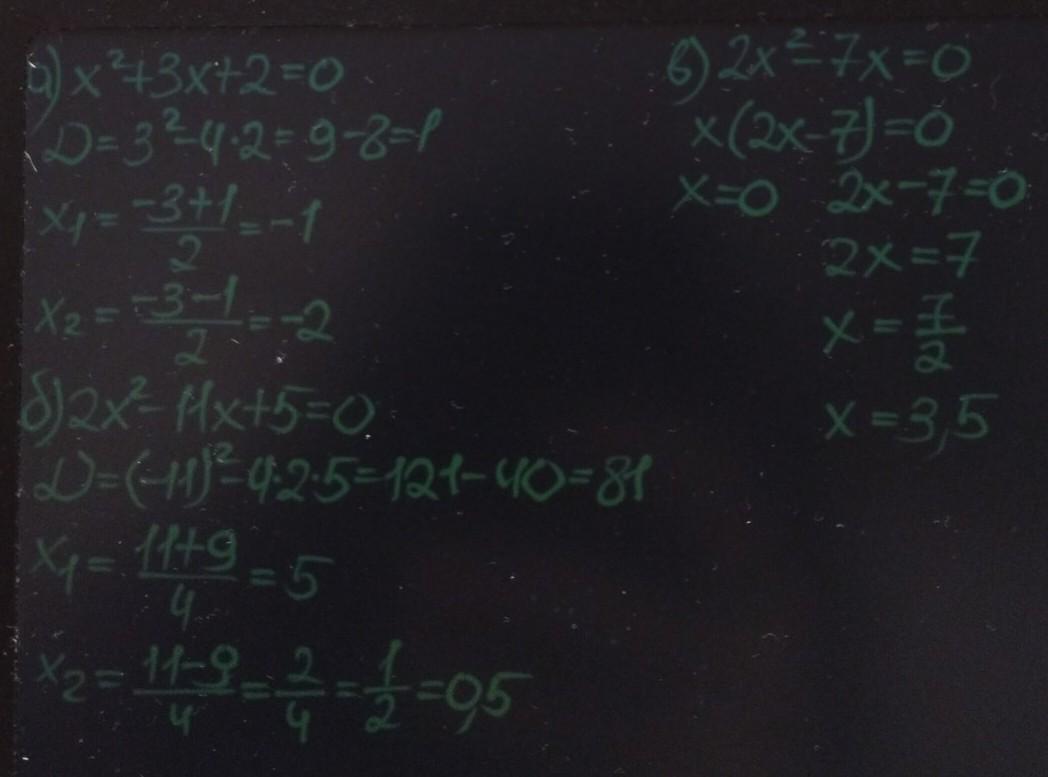 а) x²+3x+2=0
D=3²-4·2=9-8=1
x₁=(-3+1)/2=-1
x₂=(-3-1)/2=-2
б) 2x²-11x+5=0
D=(-11)²-4·2·5=121-40=81
x₁=(11+9)/4=5
x₂=(11-9)/4=2/4=1/2=0,5
в) 2x²-7x=0
x(2x-7)=0
x=0 2x-7=0
2x=7
x=7/2
x=3,5